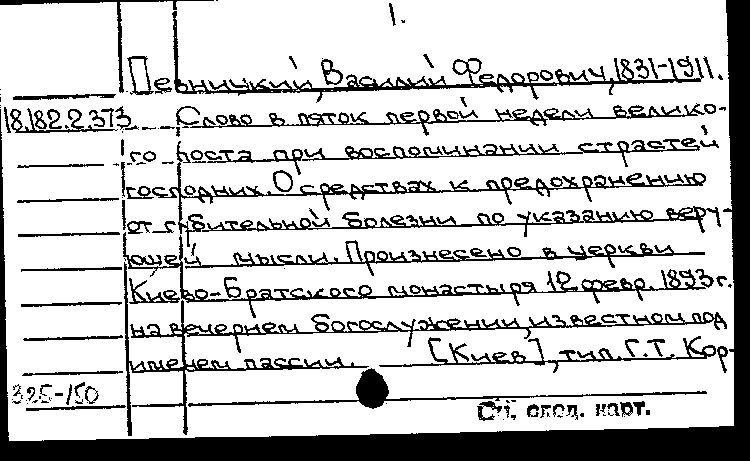 1.
Певницкий, Василий Федорович, 1831-1911.
18.182.2.373 Слово в пяток первой недели велико-
го поста при воспоминании страстей
господних. О средствах к предохранению
от губительной болезни по указанию веру-
ющей мысли. Произнесено в церкви
Киево-Братского монастыря 12 февр. 1893 г.
на вечернем богослужении, известном под
именем пассии. [Киев], тип. Г.Т. Кор-
325-150
См. след. карт.